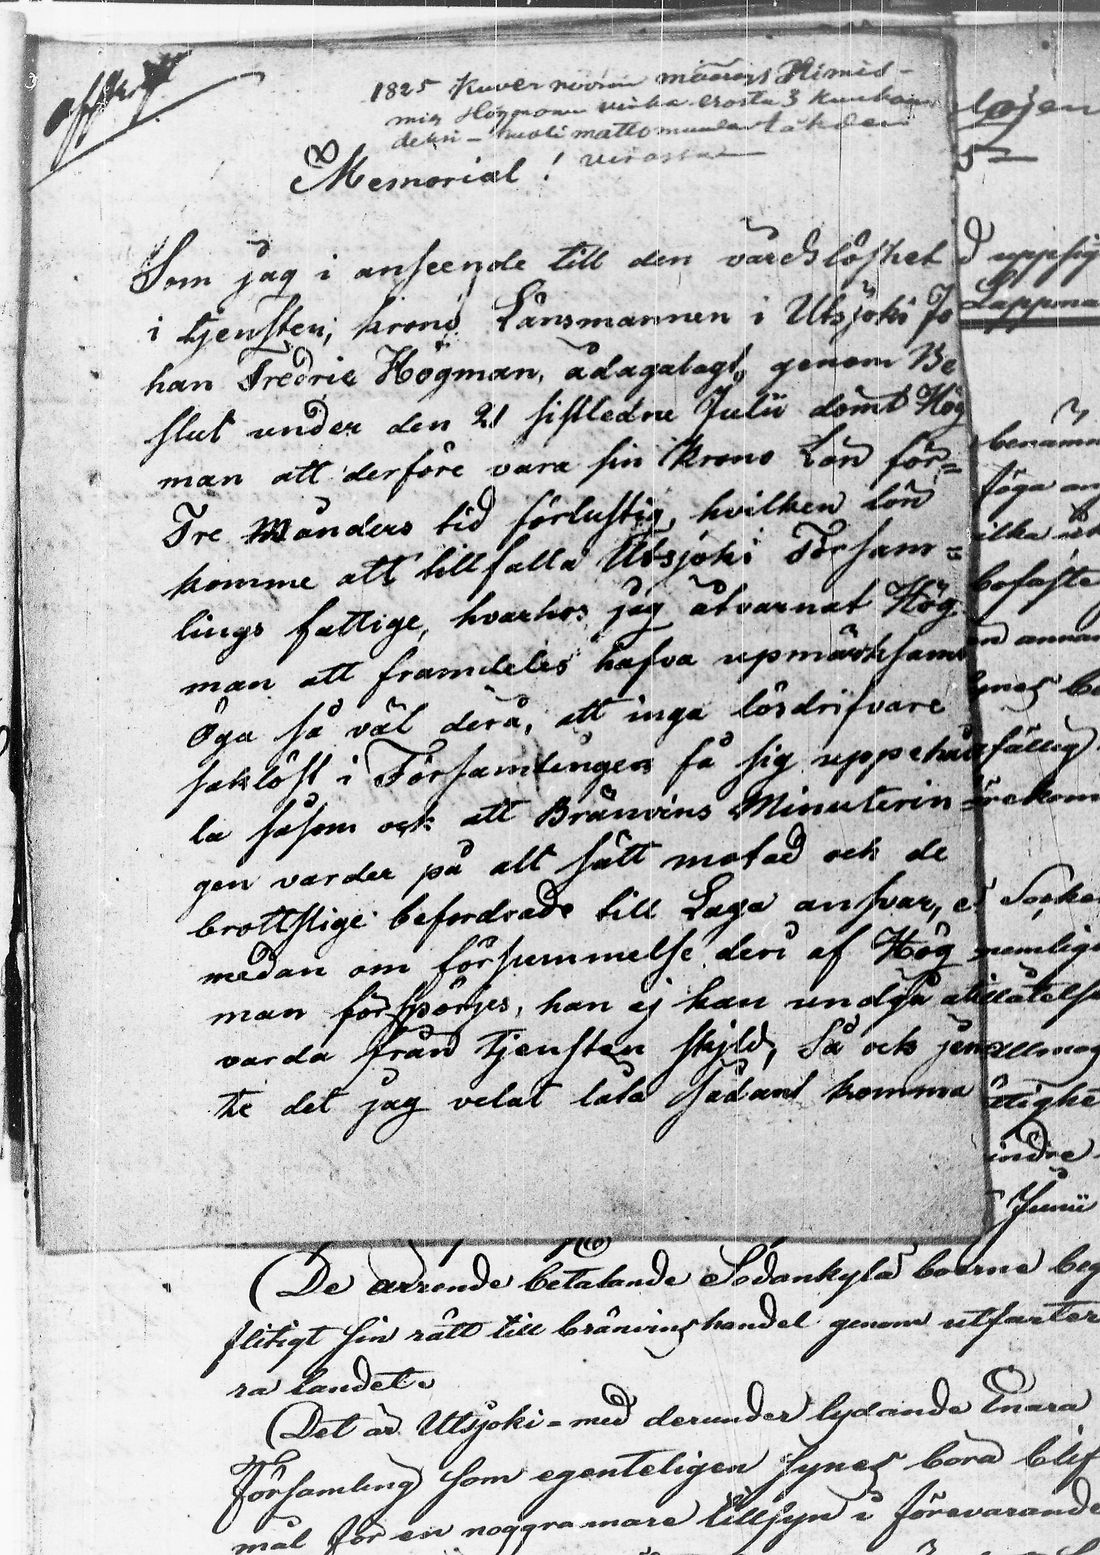 1825 Kuvernöörin määräys Nimis-
mies Högmanin virka erosta 3 kuukau
deksi
virassa
Memorial!
Som jag i anseende till den vårdslöshet
i tjensten, krono Länsmannen i Utsjoki Jo
han Fredric Högman, ådagalagt, genom Be
slut under den 21 sistledne Julii dömt Hög
man att derföre vara sin Krono Lön för
Tre Månders tid förlustig, hvilken lön
komme att tillfalla Utsjoki Försam=
lings fattige, hvarhos jag åtvarnat Hög
man att framdeles hafva upmärksamt
Öga så väl derå, att inga lösdrifvare
saklöst i Församlingen få sig uppehål
la såsom ock att Bränvins Minuterin
gen varder på alt sätt motad och de
brottslige befordrade till Laga ansvar, e
medan om försummelse deri af Hög
man förspörjes, han ej kan undgå at
varda från tjensten skild, Så och jem
te det jag velat låta sådant komma
5
d uppsig
Lappma
benämn
föga an
bofaste
annan
synes be
fällig
Socke
nemlige
tillåtelse
Allmog
indre
Junii
(De arrende betalande Sodankylä boerne beg
flitigt sin rätt till bränvinshandel genom utfarter
ra landet.
(Det är Utsjoki=med derunder lydande Enara
Församling som egenteligen synes böra blif
mål för en noggrannare tillsyn i förevarande